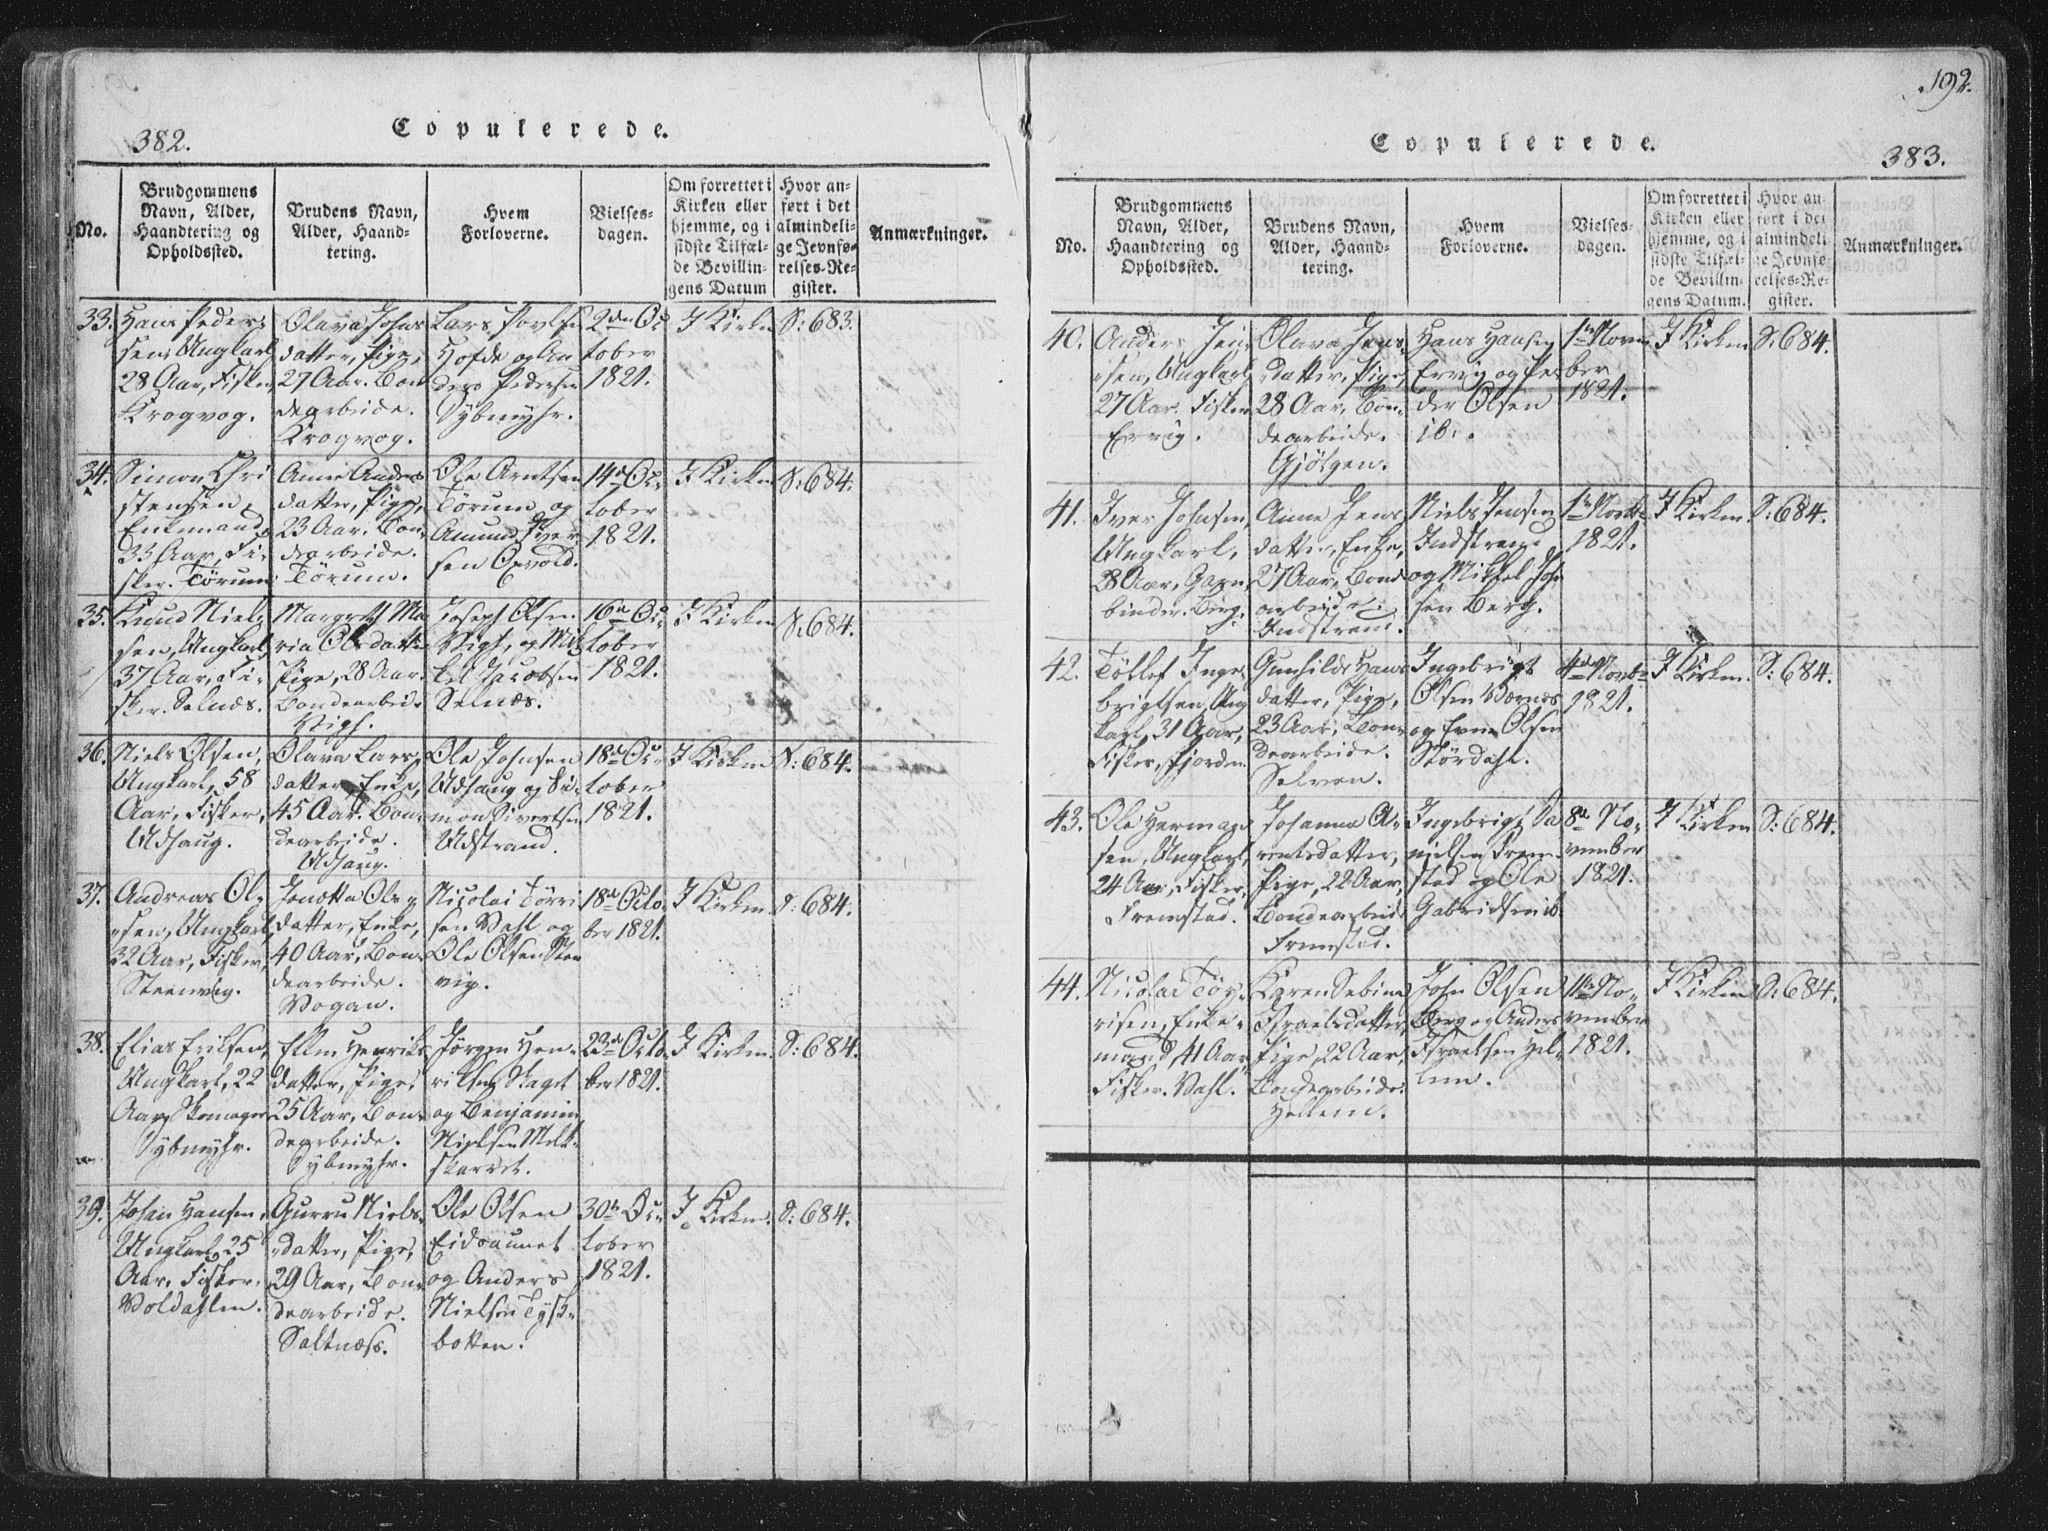 382.
Copulerede.
No.
Brudgommens
Navn, Alder,
Haandtering og
Opholdssted.
Brudens Navn,
Alder, Haand-
tering.
Hvem
Forloverne.
Vielses-
dagen.
Om forrettet i
Kirken eller
hjemme, og i
sidste Tilfæl-
de Bevillin-
gens Datum
Hvor an-
ført i det
almindeli-
ge Jevnfø-
relses-Re-
gister.
Anmærkninger.
33.
Hans Peder-
sen, Ungkarl
28 Aar, Fisker,
Krogvog.
Olava Johns
datter, Pige,
27 Aar. Bon
dearbeide.
Krogvog.
Lars Povlsen
Hofde og An
ders Pedersen
Sybmyhr.
2den Oc
tober
1821.
I Kirken
S: 683.
34.
Simon Chri
stensen
Enkemand
33 Aar, Fi-
sker. Tørum
Anne Anders
datter, Pige,
23 Aar. Bon-
dearbeide.
Tørum.
Ole Arntsen
Tørum og
Amund Iver
sen Opvold.
14de Oc-
tober
1821.
I Kirken
S: 684.
35.
Knud Niel-
sen, Ungkarl
37 Aar, Fi-
sker. Selnæs.
Margrett Ma
ria Olsdatter
Pige, 28 Aar.
Bondearbeid.
Vigs.
Joseph Olsen
Vigs, og Mic
kel Jacobsen
Selnæs.
16de Oc-
tober
1821.
I Kirken
S: 684.
36.
Niels Olsen,
Ungkarl, 58
Aar, Fisker,
Udhaug.
Olava Lars
datter, Enke,
45 Aar. Bon-
dearbeide.
Udhaug.
Ole Johnsen
Udhaug og Si-
mon Sivertsen
Udstrand.
18de Oc-
tober
1821.
I Kirken
S: 684.
37.
Andreas Ol-
sen, Ungkarl,
32 Aar, Fisker,
Steenvig.
Jonetta Ols-
datter, Enke,
40 Aar, Bon-
dearbeide.
Vogan.
Nicolai Tørri
sen Vahl og
Ole Olsen Steen
vig.
18de Octo-
ber 1821.
I Kirken.
S: 684.
38.
Elias Eriksen,
Ungkarl, 22
Aar, Skomager
Sybmyhr.
Ellen Henriks
datter, Pige,
25 Aar, Bon-
dearbeide.
Sybmyhr.
Jørgen Hen-
riksen Skaget
og Benjamin
Nielsen Melk-
skarret.
23de Octo
ber 1821.
I Kirken.
S: 684.
39.
Johan Hansen,
Ungkarl, 25
Aar, Fisker.
Voldahlen.
Gurru Niels-
datter, Pige,
29 Aar, Bon-
dearbeide.
Saltnæss.
Ole Olsen
Eidsaunet
og Anders
Nielsen Tysk-
botten.
30te Oc-
tober
1821.
I Kirken.
S: 684.
192.
Copulerede.
383.
No.
Brudgommens
Navn, Alder,
Haandtering og
Opholdssted.
Brudens Navn,
Alder, Haand-
tering.
Hvem
Forloverne.
Vielses-
dagen.
Om forrettet i
Kirken eller
hjemme, og i
sidste Tilfæl-
de Bevillin-
gens Datum.
Hvor an-
ført i det
almindeli-
ge Jevnfø-
relses-Re-
gister.
Anmærkninger.
40.
Anders Jen-
sen, Ungkarl,
27 Aar. Fisker
Ervig.
Olava Jens-
datter, Pige,
28 Aar, Bon-
dearbeide.
Gjølgen.
Hans Hansen
Ervig og Pe
der Olsen
ib.
1te Novem
ber
1821.
I Kirken
S: 684.
41.
Iver Johnsen,
Ungkarl,
28 Aar, Garn-
binder. Berg.
Anne Jens
datter, Enke,
27 Aar, Bond
arbeide.
Indstrand.
Niels Jensen
Indstrand
og Mikkel Joh-
sen Berg.
1te Novb:
1821.
I Kirken
S: 684.
42.
Tøllef Inge
brigtsen, Ung
karl, 31 Aar,
Fisker, Fjorden.
Gunhilde Hans
datter, Pige,
23 Aar, Bon-
dearbeide.
Selven.
Ingebrigt
Olsen Værnæs
og Even Olsen
Størdahl.
4de Novb:
1821.
I Kirken.
S: 684.
43.
Ole Herman
sen, Ungkarl,
24 Aar, Fisker,
Fremstad.
Johanna A-
rentsdatter,
Pige, 22 Aar,
Bondearbeid.
Fremstad.
Ingebrigt Da
nielsen Frem-
stad og Ole
Gabrielsen ib.
8de No-
vember
1821.
I Kirken
S: 684.
44.
Nicolai Tør-
risen, Enke-
mand, 41 Aar,
Fisker. Vahl.
Karen Sebina
Israelsdatter,
Pige, 22 Aar,
Bondearbeide.
Hellem.
John Olsen
Berg og Anders
Israelsen Hel-
lem.
11te No-
vember
1821.
I Kirken
S: 684.